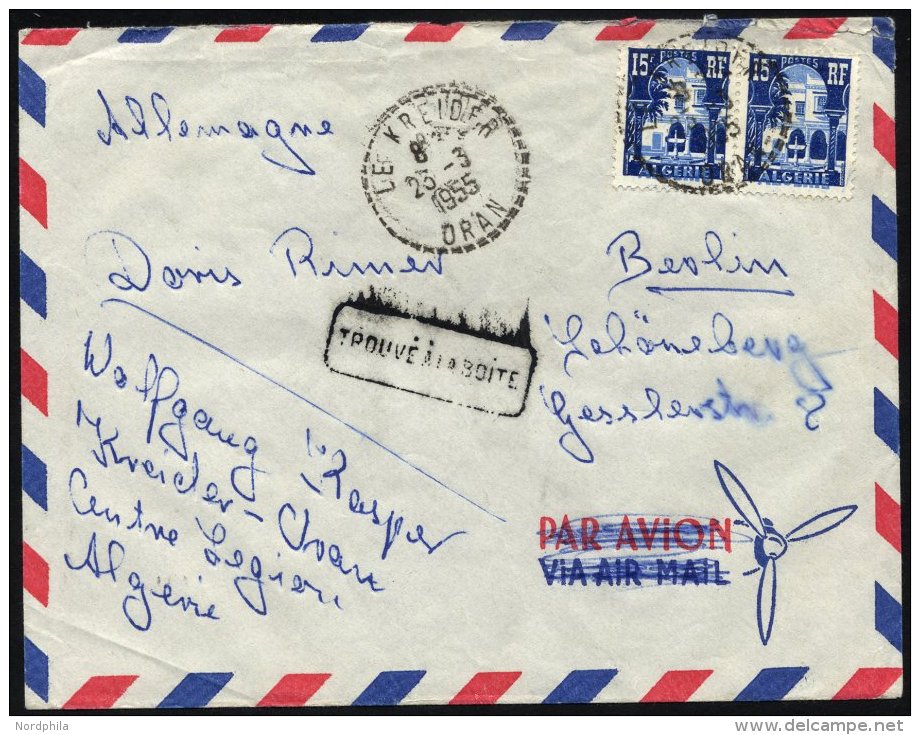 15F POSTES RF
ALGERIE
15F POSTES RF
ALGERIE
LE KREIDER
8H
25-3
1955
ORAN
Allemagne
Doris Rimer
Berlin
Schöneberg
TROUVÉ A LA BOITE
Wolfgang Kasper
Kreider-Oran
Centre Legion
Algérie
PAR AVION
VIA AIR MAIL
Nordphila
www.delcampe.net